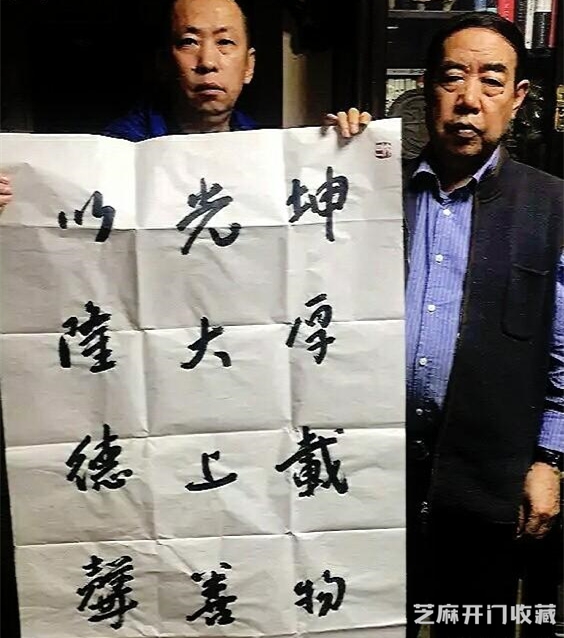 坤厚載物
光大上善
以隆德馨
芝麻开门收藏